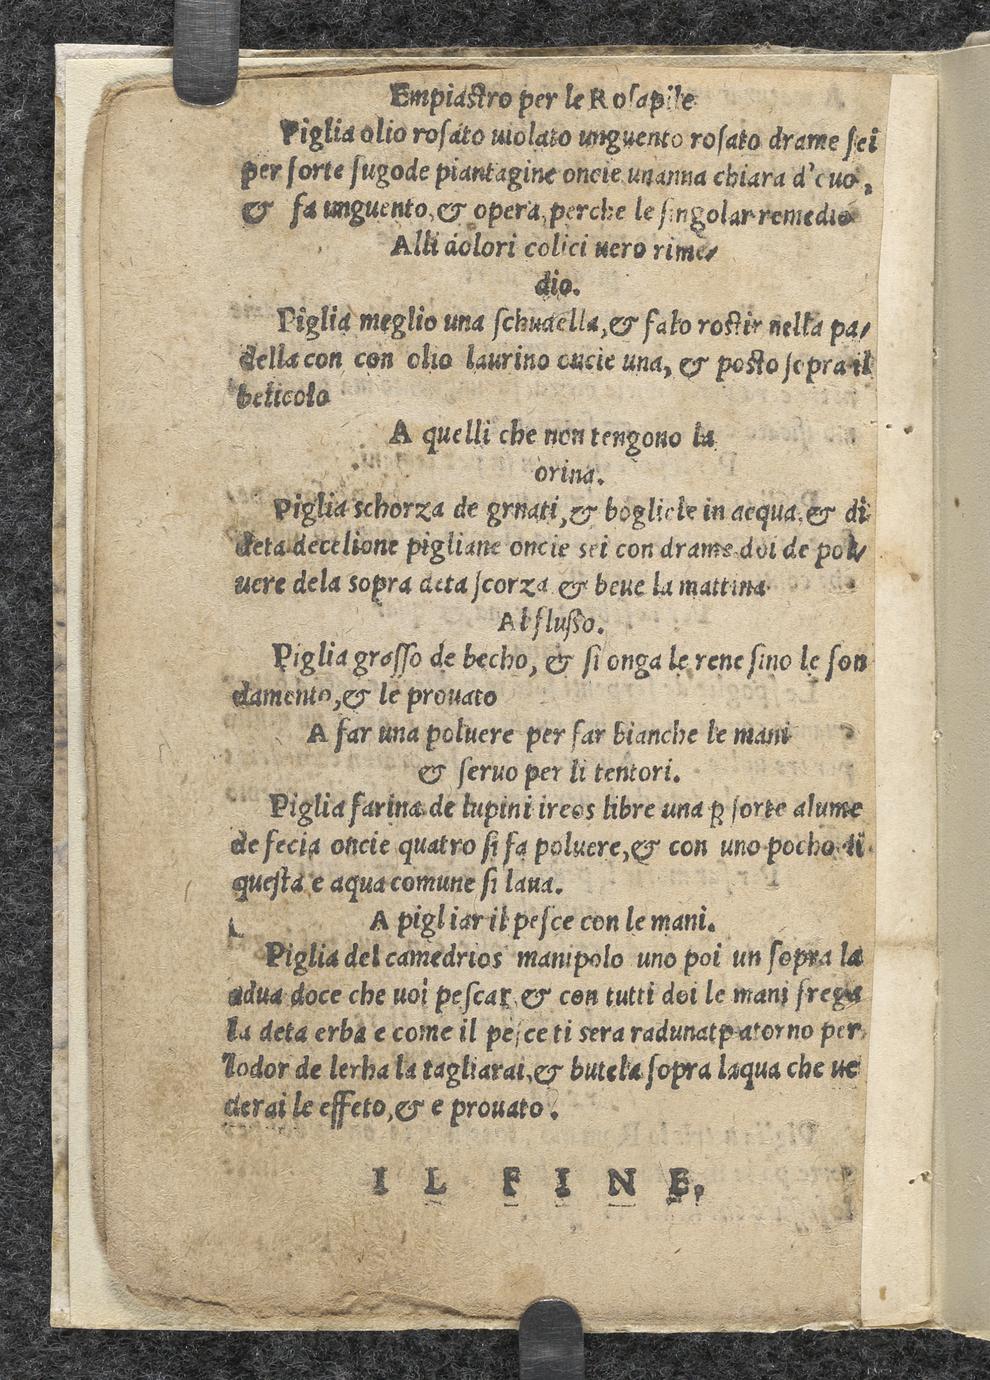 Empiastro per le Rosapile
Piglia olio rosato uiolato unguento rosato drame sei
per sorte sugode piantagine oncie unanna chiara d'euo,
& fa unguento, & opera, perche le singolar remedio
Alli dolori colici uero rime/
dio.
Piglia meglio una schudella, & falo rostir nella pa/
della con con olio laurino oncie una, & posto sopra il
belicolo
A quelli che non tengono la
orina.
Piglia schorza de grnati, & boglicle in acqua, & di
deta decelione pigliane oncie sei con drame doi de pol/
uere dela sopra deta scorza & beue la mattina
Al flusso.
Piglia grasso de becho, & si onga le rene sino le fon
damento, & le prouato
A far una poluere per far bianche le mani
& seruo per li tentori.
Piglia farina de lupini ireos libre una ꝑ sorte alume
de fecia oncie quatro si fa poluere, & con uno pocho di
questa e aqua comune si laua.
A pigliar il pesce con le mani.
Piglia del camedrios manipolo uno poi un sopra la
adua doce che uoi pescar, & con tutti doi le mani frega
la deta erba e come il pesce ti sera radunatp atorno per
lodor de lerba la tagliarai, & butela sopra laqua che ue
derai le effeto, & e prouato.
IL FINE,